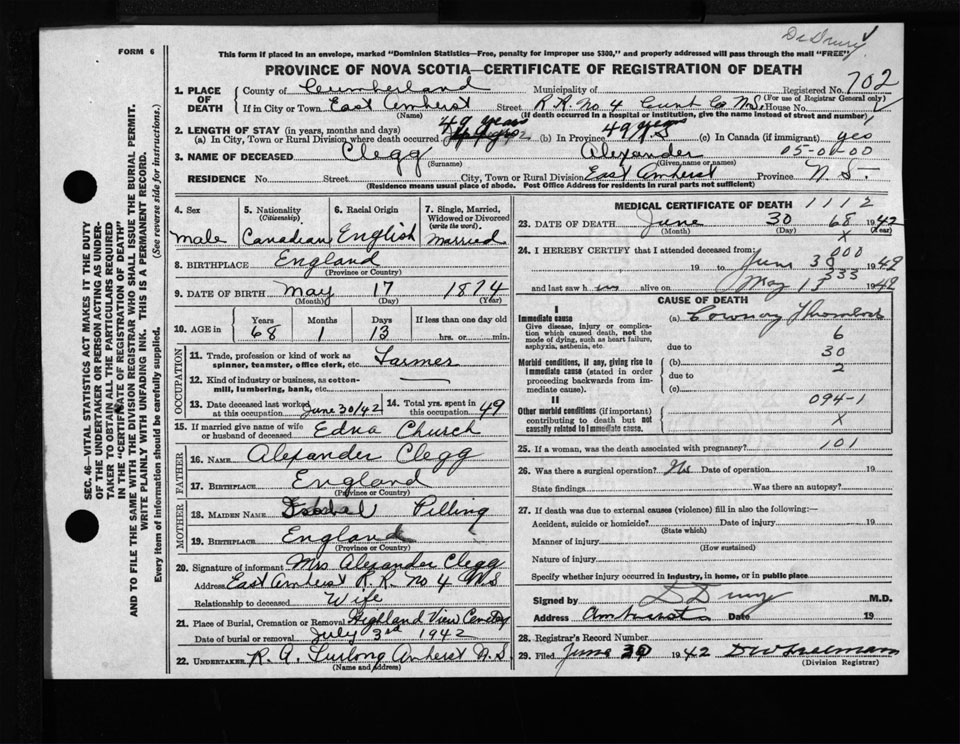 Dr Drury
FORM 6
This form if placed in an envelope, marked "Dominion Statistics—Free, penalty for improper use $300," and properly addressed will pass through the mail "FREE"
PROVINCE OF NOVA SCOTIA—CERTIFICATE OF REGISTRATION OF DEATH
SEC. 46—VITAL STATISTICS ACT MAKES IT THE DUTY
OF THE UNDERTAKER OR PERSON ACTING AS UNDER-
TAKER TO OBTAIN ALL THE PARTICULARS REQUIRED
IN THE "CERTIFICATE OF REGISTRATION OF DEATH"
AND TO FILE THE SAME WITH THE DIVISION REGISTRAR WHO SHALL ISSUE THE BURIAL PERMIT.
WRITE PLAINLY WITH UNFADING INK. THIS IS A PERMANENT RECORD.
Every item of information should be carefully supplied. (See reverse side for instructions.)
1. PLACE OF DEATH County of Cumberland Municipality of Registered No. 702
(For use of Registrar General only)
If in City or Town East Amherst Street R.R. No 4 Cumb Co N.S. House No.
(Name) (If death occurred in a hospital or institution, give the name instead of street and number)
2. LENGTH OF STAY (in years, months and days)
(a) In City, Town or Rural Division where death occurred 49 years (b) In Province 49 years (c) In Canada (if immigrant) yes
3. NAME OF DECEASED Clegg Alexander 05-01-00
(Surname) (Given name or names)
RESIDENCE No. Street City, Town or Rural Division East Amherst Province N.S.
(Residence means usual place of abode. Post Office Address for residents in rural parts not sufficient)
4. Sex Male
5. Nationality (Citizenship) Canadian
6. Racial Origin English
7. Single, Married, Widowed or Divorced (write the word) Married
8. BIRTHPLACE England
(Province or Country)
9. DATE OF BIRTH May 17 1874
(Month) (Day) (Year)
10. AGE in Years 68 Months 1 Days 13 If less than one day old hrs. or min.
OCCUPATION
11. Trade, profession or kind of work as spinner, teamster, office clerk, etc. Farmer
12. Kind of industry or business, as cotton-mill, lumbering, bank, etc. —
13. Date deceased last worked at this occupation June 30/42
14. Total yrs. spent in this occupation 49
15. If married give name of wife or husband of deceased Edna Church
FATHER
16. NAME Alexander Clegg
17. BIRTHPLACE England
(Province or Country)
MOTHER
18. MAIDEN NAME Pilling
19. BIRTHPLACE England
(Province or Country)
20. Signature of informant Mrs Alexander Clegg
Address East Amherst R.R. No 4 N.S
Relationship to deceased Wife
21. Place of Burial, Cremation or Removal Highland View Cemetery
Date of burial or removal July 3rd 1942
22. UNDERTAKER R. A. Furlong Amherst N.S.
(Name and Address)
MEDICAL CERTIFICATE OF DEATH 1112
23. DATE OF DEATH June 30 68 1942
(Month) (Day) (Year)
X
24. I HEREBY CERTIFY that I attended deceased from: 800
19 to June 30 1942
333
and last saw h im alive on May 13 1942
CAUSE OF DEATH
I
Immediate cause
Give disease, injury or complication which caused death, not the mode of dying, such as heart failure, asphyxia, asthenia, etc.
(a) Coronary Thrombosis
6
due to 30
Morbid conditions, if any, giving rise to immediate cause (stated in order proceeding backwards from immediate cause).
(b) 2
due to
(c)
II
Other morbid conditions (if important) contributing to death but not causally related to immediate cause.
094-1
X
25. If a woman, was the death associated with pregnancy? 101
26. Was there a surgical operation? No Date of operation 19
State findings Was there an autopsy?
27. If death was due to external causes (violence) fill in also the following:—
Accident, suicide or homicide? Date of injury 19
(State which)
Manner of injury
(How sustained)
Nature of injury
Specify whether injury occurred in industry, in home, or in public place
Signed by D Drury M.D.
Address Amherst Date 19
28. Registrar's Record Number
29. Filed June 30 1942 D W Freeman
(Division Registrar)